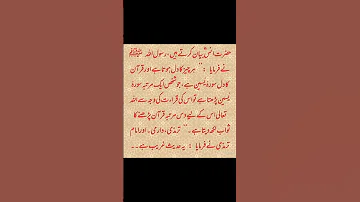 حضرت انسؓ بیان کرتے ہیں، رسول اللہ ﷺ
نے فرمایا : ’’ ہر چیز کا دل ہوتا ہے اور قرآن
کا دل سورۂ یٰسین ہے، جو شخص ایک مرتبہ سورۂ
یٰسین پڑھتا ہے تو اس کی قراءت کی وجہ سے اللہ
تعالیٰ اس کے لیے دس مرتبہ قرآن پڑھنے کا
ثواب لکھ دیتا ہے ۔‘‘ ترمذی، دارمی ۔ اور امام
ترمذی نے فرمایا : یہ حدیث غریب ہے ۔۔